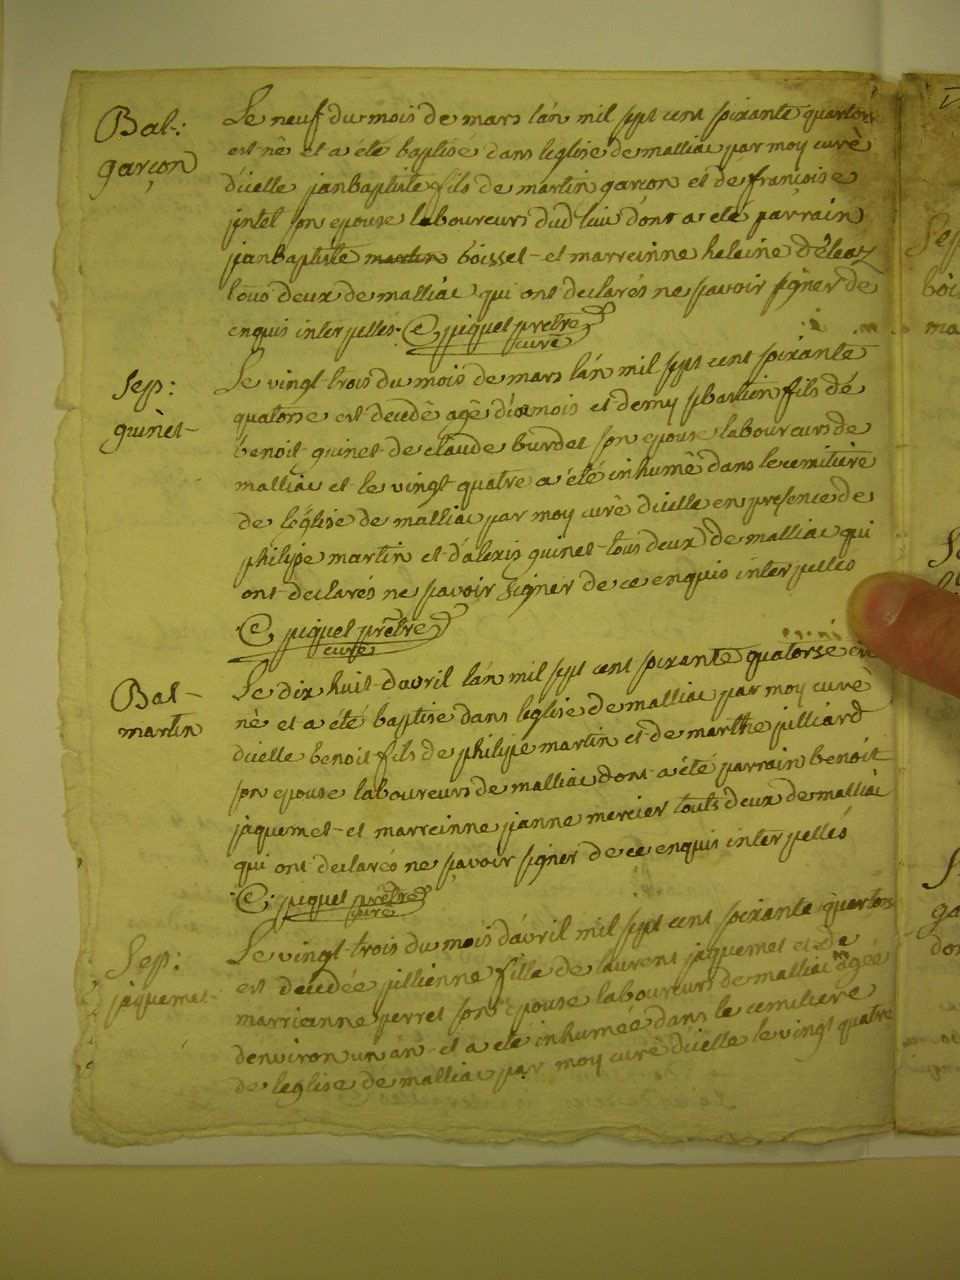 Bat.:
garçon
Le neuf du mois de mars l'án mil sept cent soixante quators
est nê et a été baptise dans leglise de malliac par moy curè
d'icelle janbaptiste fils de martin garçon et de françoise
jntel son epouse laboureurs dud lieu dont a eté parrain
janbaptiste martin boisset et marreinne helaine d'éléaz
tous deux de malliac qui ont declarés ne savoir signer de
enquis interpellés. C piquet prètre
curé
Sep:
guinet
Le vingt trois du mois de mars l'án mil sept cent soixante
quatorse est decedé agê d'ix mois et demy sbastien fils dé
bénoit guinet de claude burdet son epouse laboureurs de
malliac et le vingt quatre a été inhumê dans le cemitiere
de léglise de malliac par moy curè d'icelle en presence de
philipe martin et d'alexis guinet tous deux de malliac qui
ont declarés ne savoir signer de ce enquis interpellés
C piquet prêtre
curé
Bat
martin
Le dix huit d'avril l'án mil sept cent soixante quatorse est
nè et a été baptise dans leglise de malliac par moy curè
dicelle benoit fils de philipe martin et de marthe julliard
son epouse laboureurs de malliac dont a été parrain benoit
jaquemet et marreinne janne mercier touts deux de malliac
qui ont declarés ne savoir signer de ce enquis interpellés
C. piquet prètre
curé
Sep:
jaquemet
Le vingt trois du mois d'avril mil sept cent soixante quators
est decedée jullienne fille de laurent jaquemet et de
marrianne perret son epouse laboureurs de malliac agée
denviron un an et a ete inhumée dans le cemitiere
de leglise de malliac par moy curè dicelle le vingt quatre